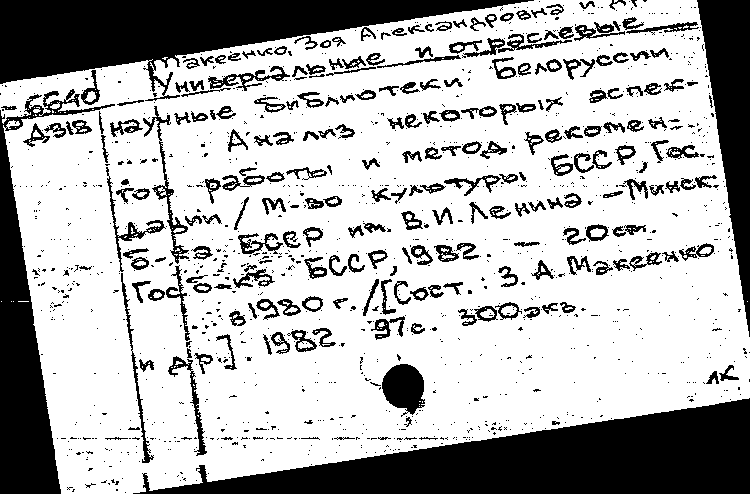 Макеенко, Зоя Александровна и др.
Универсальные и отраслевые
Б 6640
Д318
научные библиотеки Белоруссии
..... : Анализ некоторых аспек-
тов работы и метод. рекомен-
дации / М-во культуры БССР, Гос.
б-ка БССР им. В.И. Ленина. – Минск:
Гос. б-ка БССР, 1982. – 20 см.
... в 1980 г. / [Сост.: З. А. Макеенко
и др.]. 1982. 97 с. 300 экз.
лк